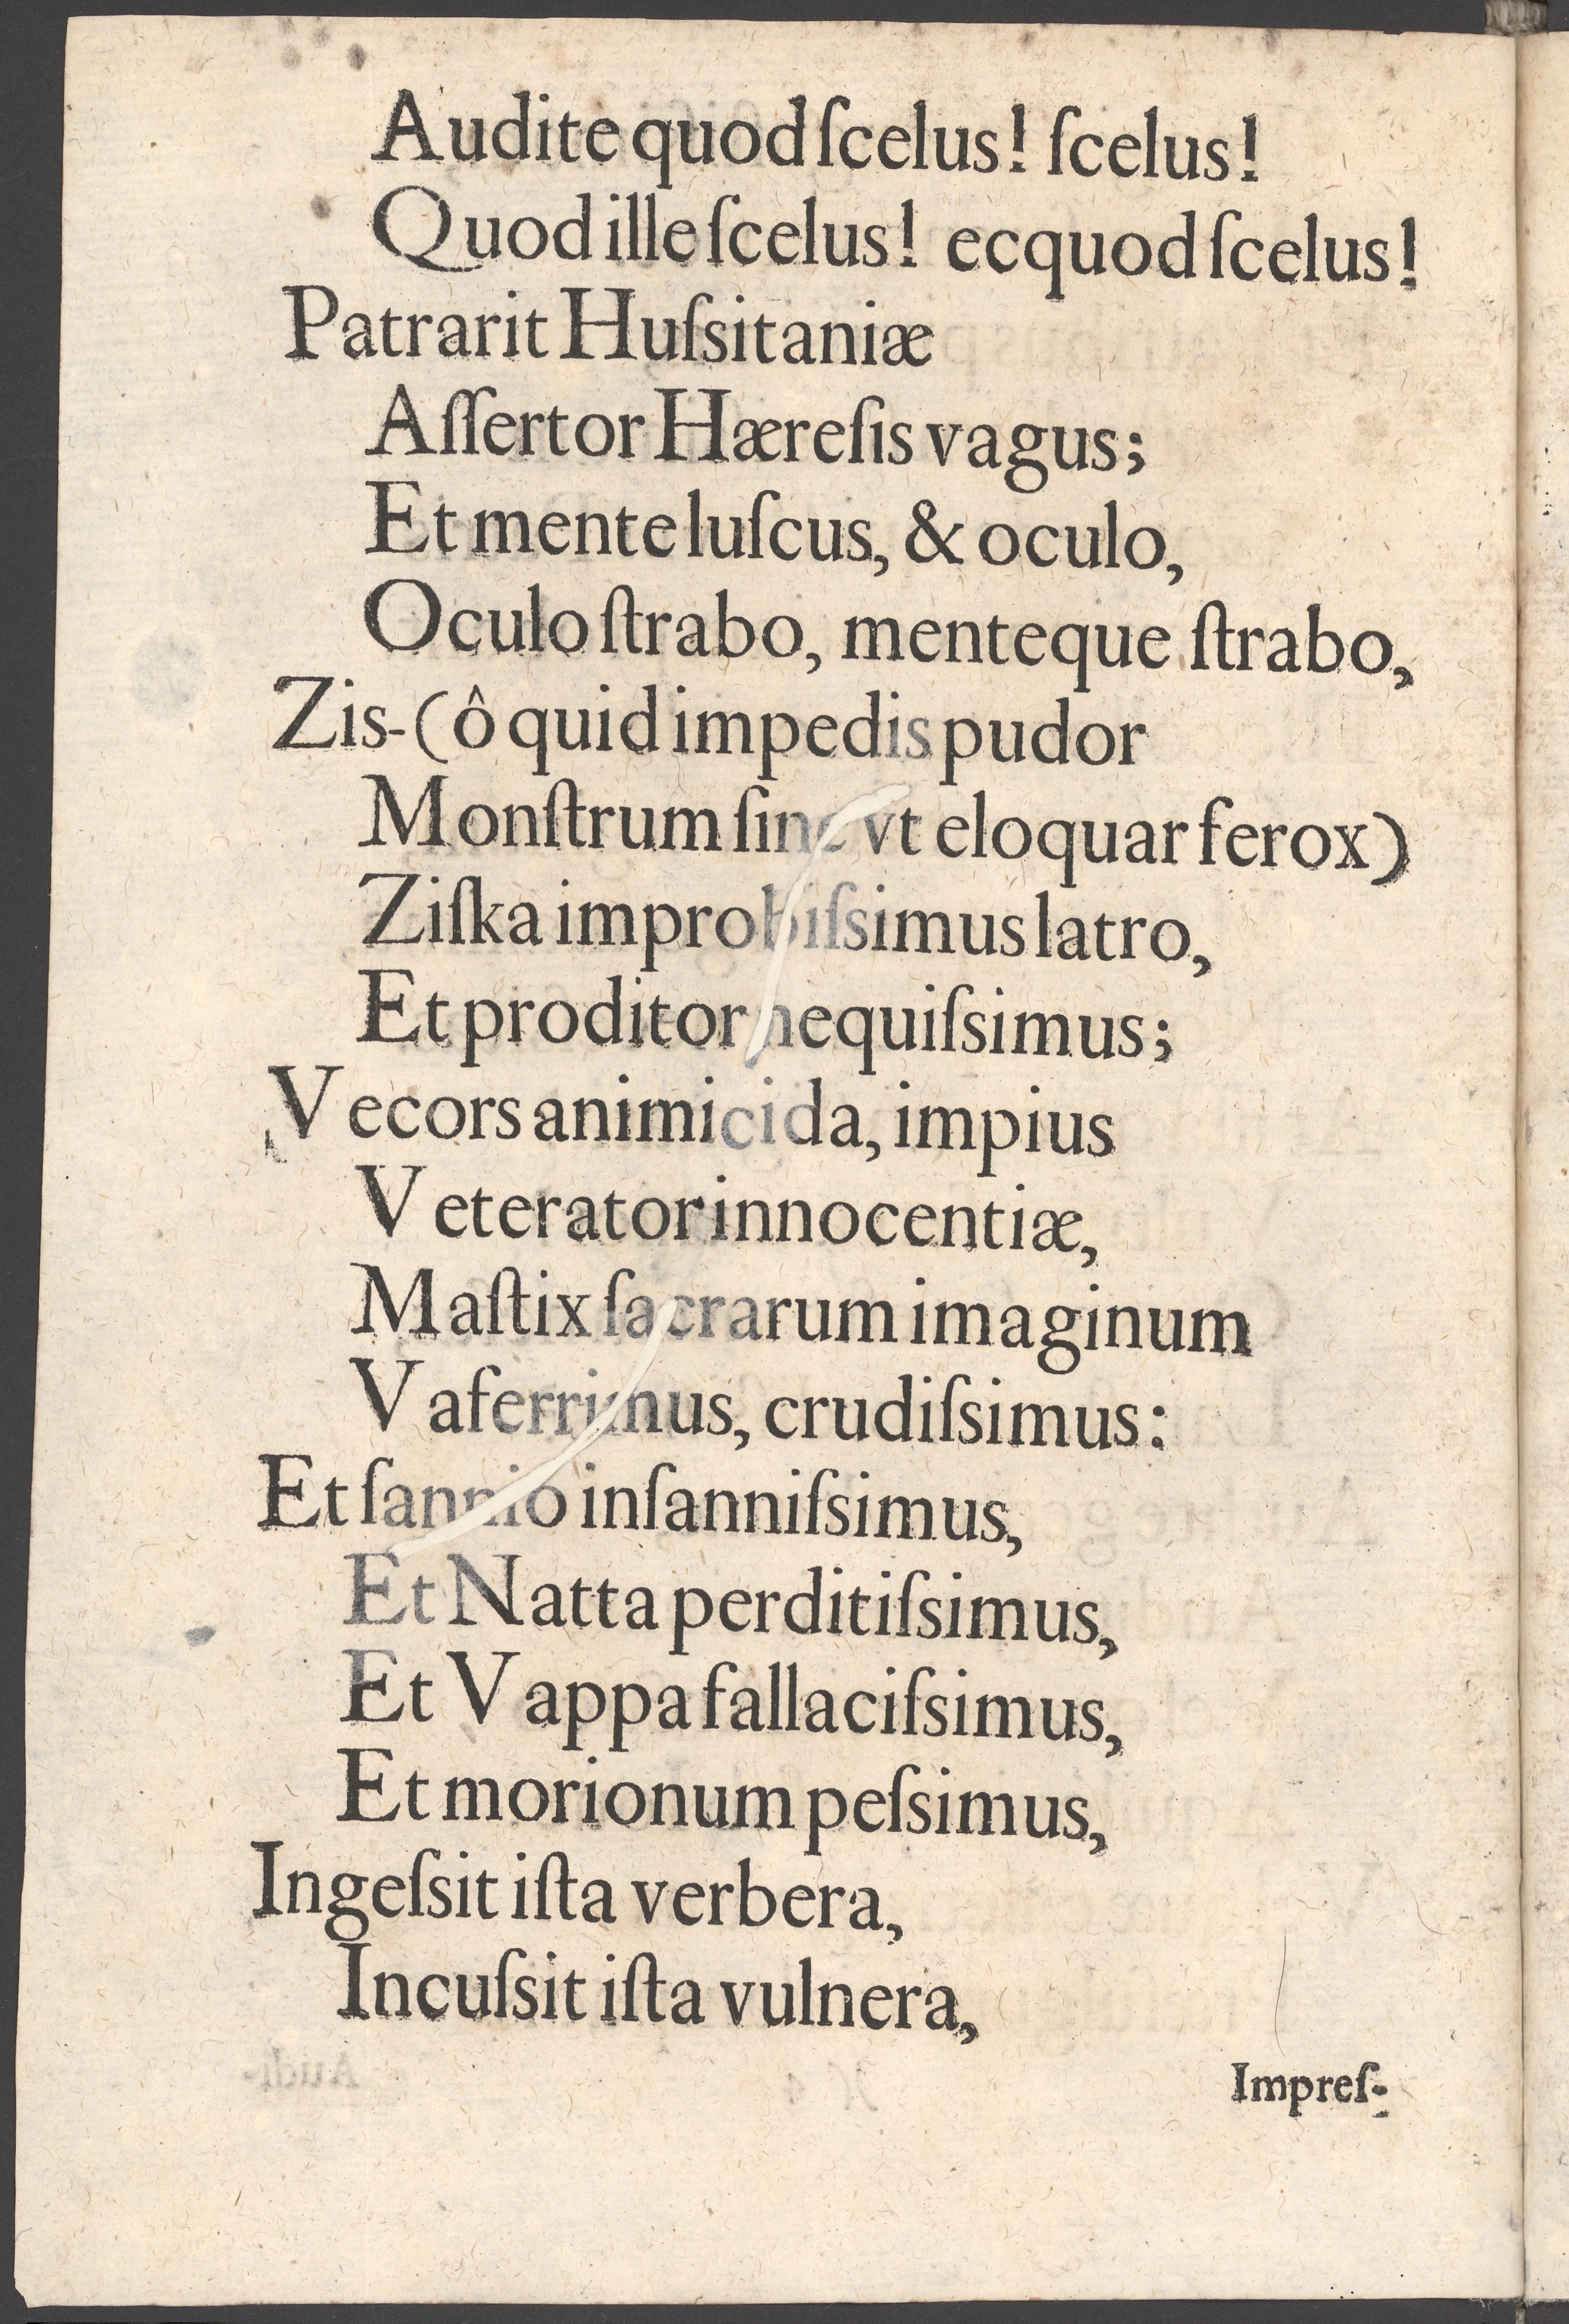 Audite quod ſcelus! ſcelus!
Quod ille ſcelus! ecquod ſcelus!
Patrarit Huſsitaniæ
Aſſertor Hæreſis vagus;
Et mente luſcus, & oculo,
Oculo ſtrabo, menteque ſtrabo,
Zis-(ô quid impedis pudor
Monſtrum ſine vt eloquar ferox)
Ziſka improbiſsimus latro,
Et proditor nequiſsimus;
Vecors animicida, impius
Veterator innocentiæ,
Maſtix ſacrarum imaginum
Vaferrimus, crudiſsimus:
Et ſannio inſanniſsimus,
Et Natta perditiſsimus,
Et Vappa fallaciſsimus,
Et morionum peſsimus,
Ingeſsit iſta verbera,
Incuſsit iſta vulnera,
Impreſ-